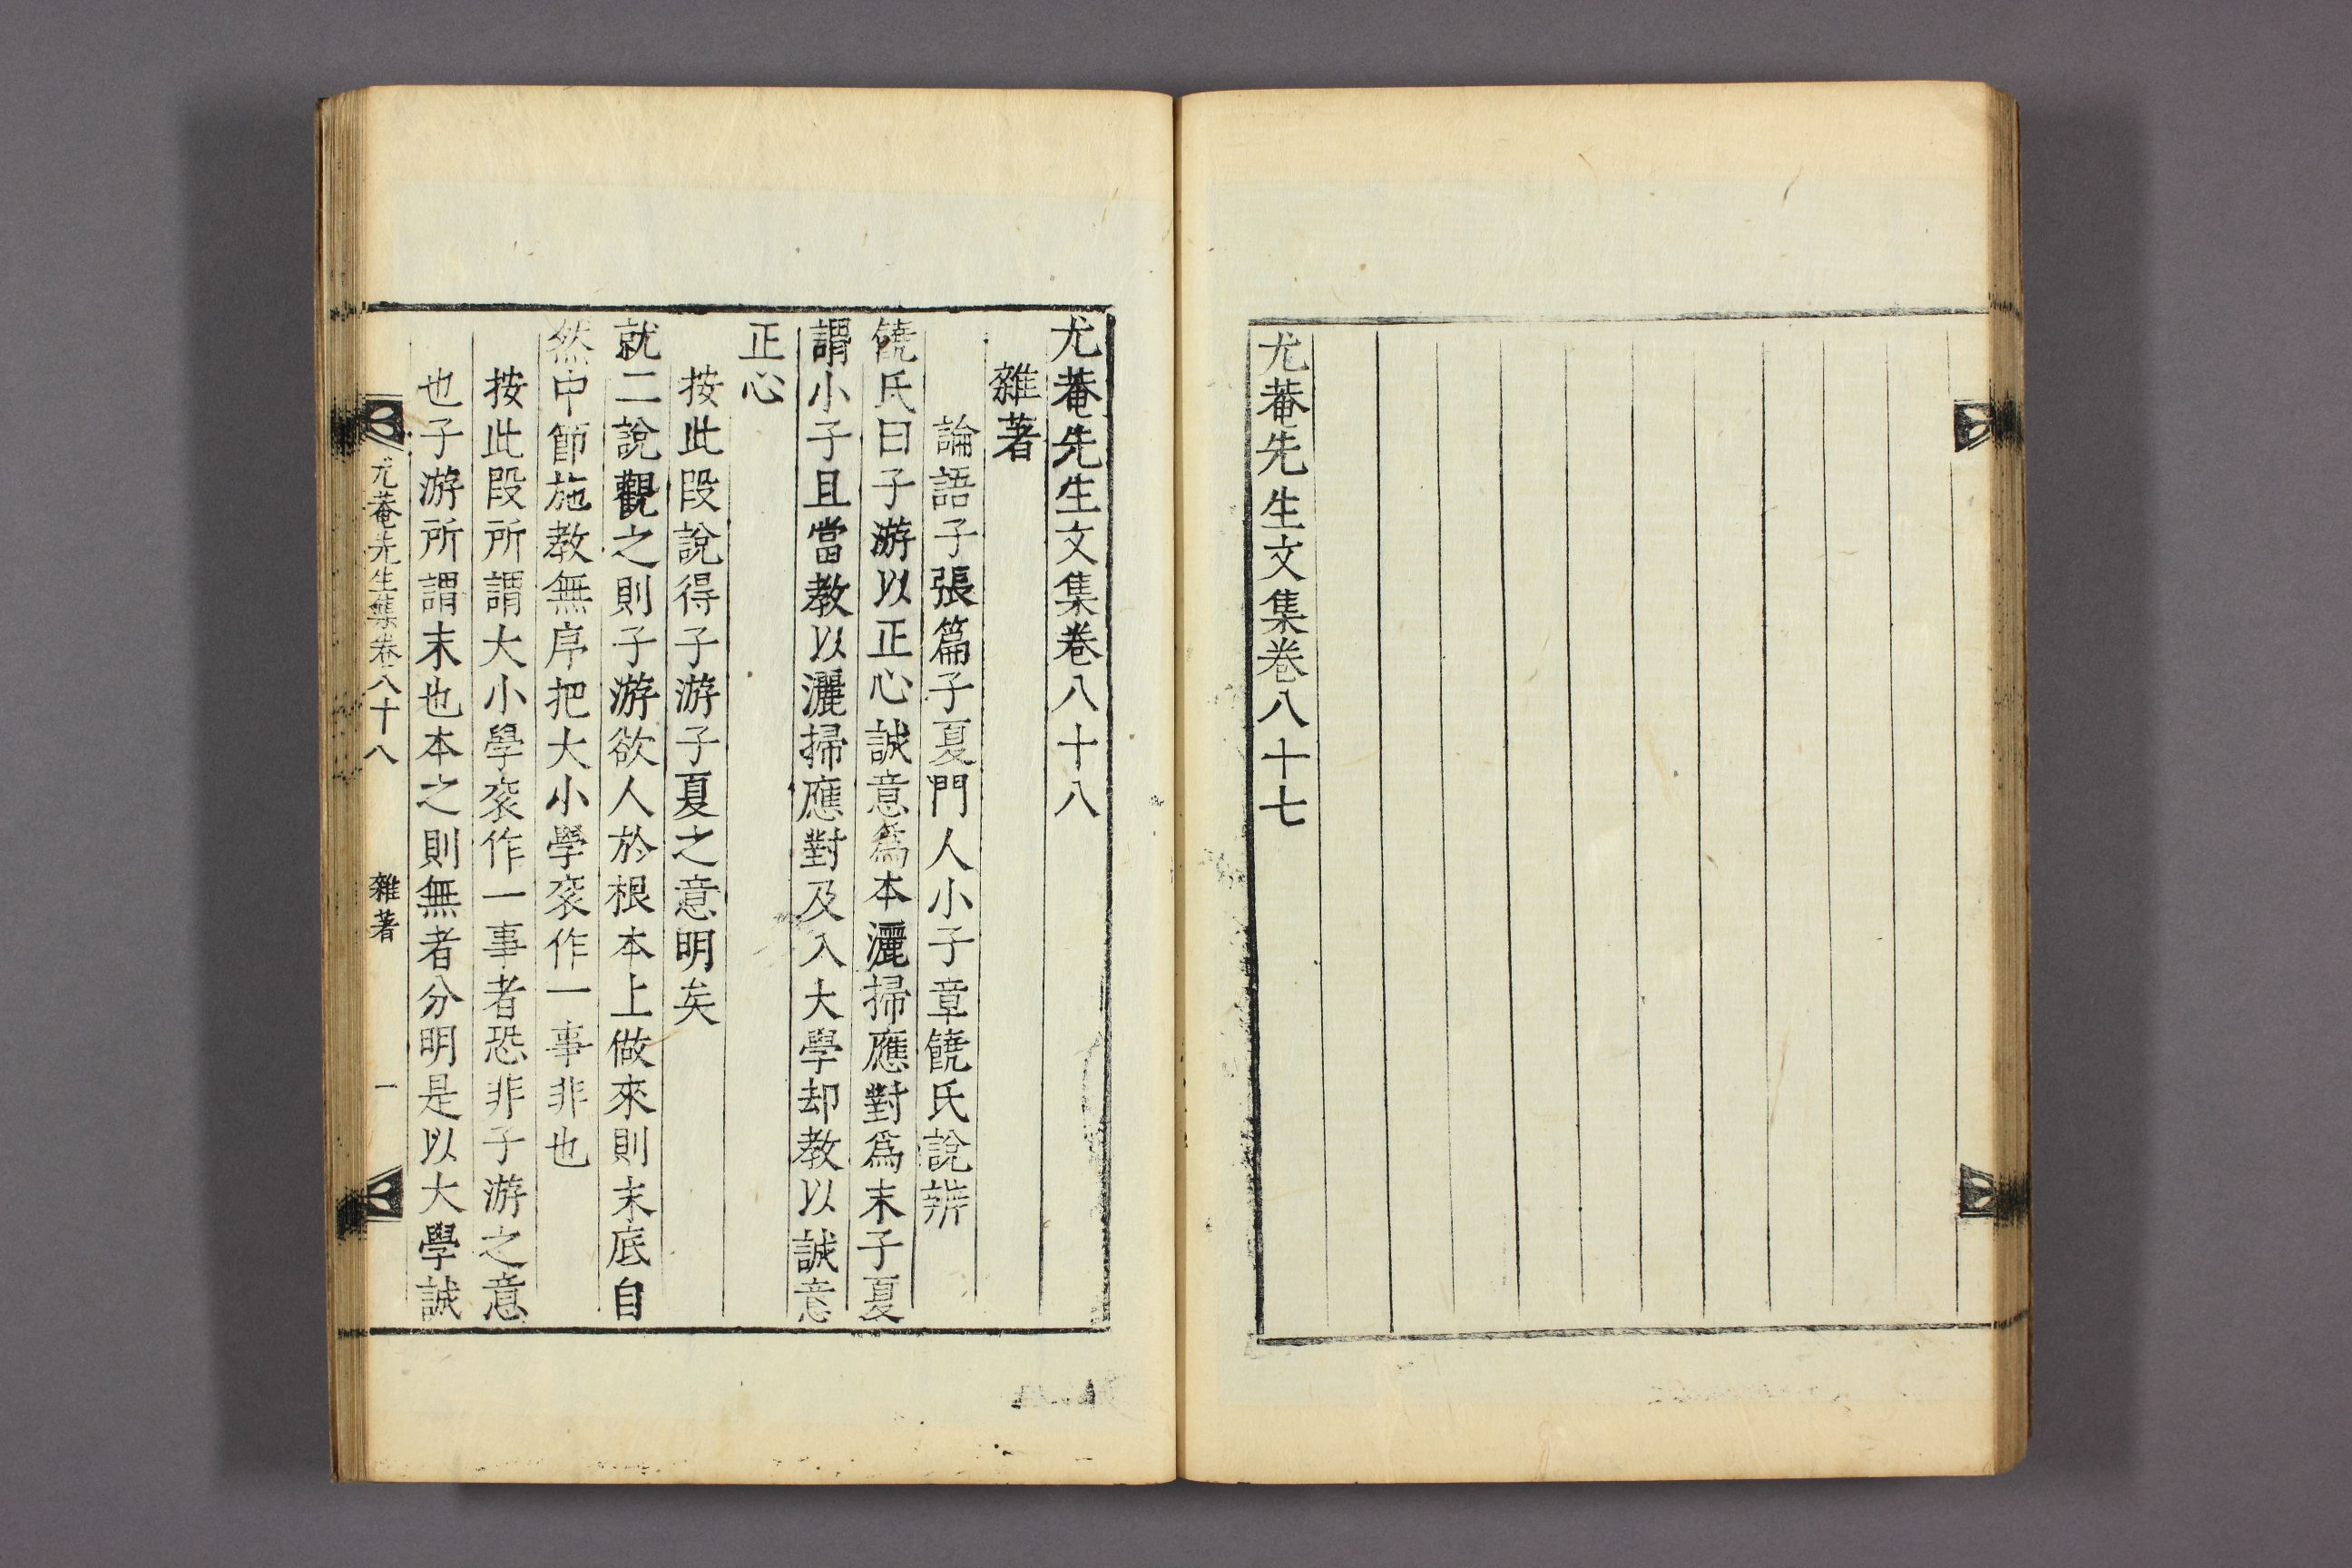 尤菴先生文集卷八十七
尤菴先生文集卷八十八
雜著
論語子張篇子夏門人小子章饒氏說辨
饒氏曰子游以正心誠意爲本灑掃應對爲末子夏
謂小子且當教以灑掃應對及入大學却教以誠意
正心
按此段說得子游子夏之意明矣
就二說觀之則子游欲人於根本上做來則末底自
然中節施教無序把大小學衮作一事非也
按此段所謂大小學衮作一事者恐非子游之意
也子游所謂末也本之則無者分明是以大學誠
尤菴先生集卷八十八 雜著 一